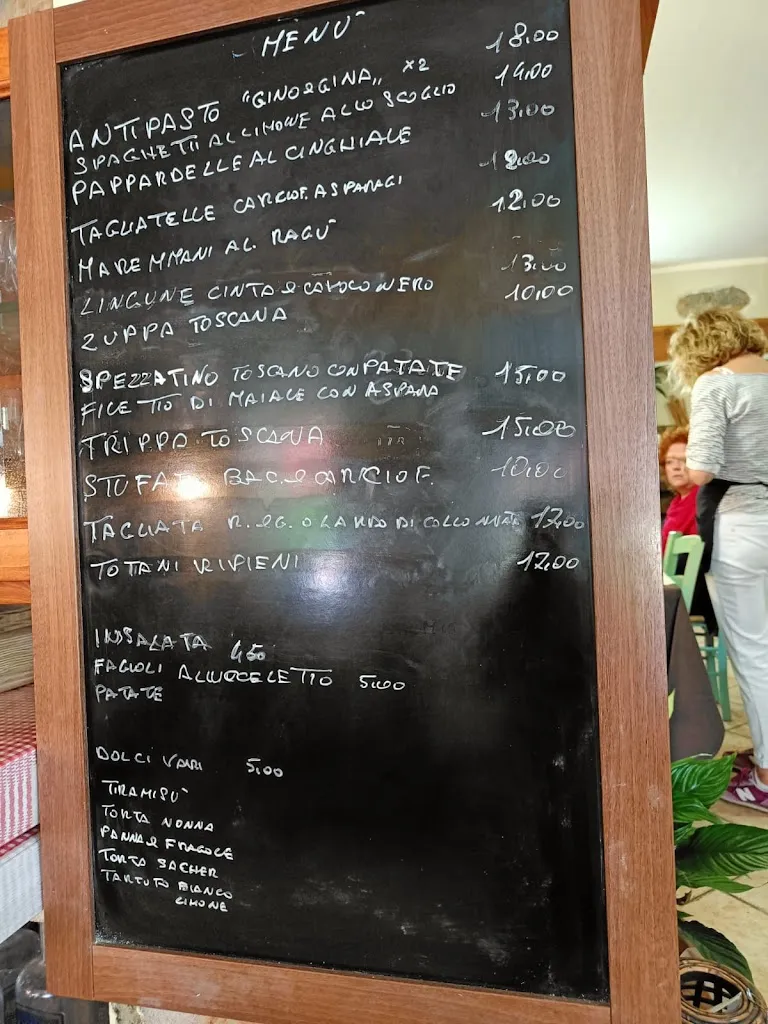 MENÙ
ANTIPASTO "GINO&GINA" x2 18.00
SPAGHETTI AL LIMONE ALLO SCOGLIO 14.00
PAPPARDELLE AL CINGHIALE 13.00
TAGLIATELLE CARCIOF. ASPARAGI
MAREMMANI AL RAGÙ 12.00
LINGUNE CINTA & CAVOLO NERO 13.00
ZUPPA TOSCANA 10.00
SPEZZATINO TOSCANO CON PATATE 15.00
FILETTO DI MAIALE CON ASPARA
TRIPPA TOSCANA 15.00
STUFAT BAC. & CARCIOF. 10.00
TAGLIATA R. & G. O LARDO DI COLLONNATA 17.00
TOTANI RIPIENI 17.00
INSALATA 4.50
FAGIOLI ALL'UCCELETTO 5.00
PATATE
DOLCI VARI 5.00
TIRAMISÙ
TORTA NONNA
PANNA & FRAGOLE
TORTA SACHER
TARTUFO BIANCO
LIMONE